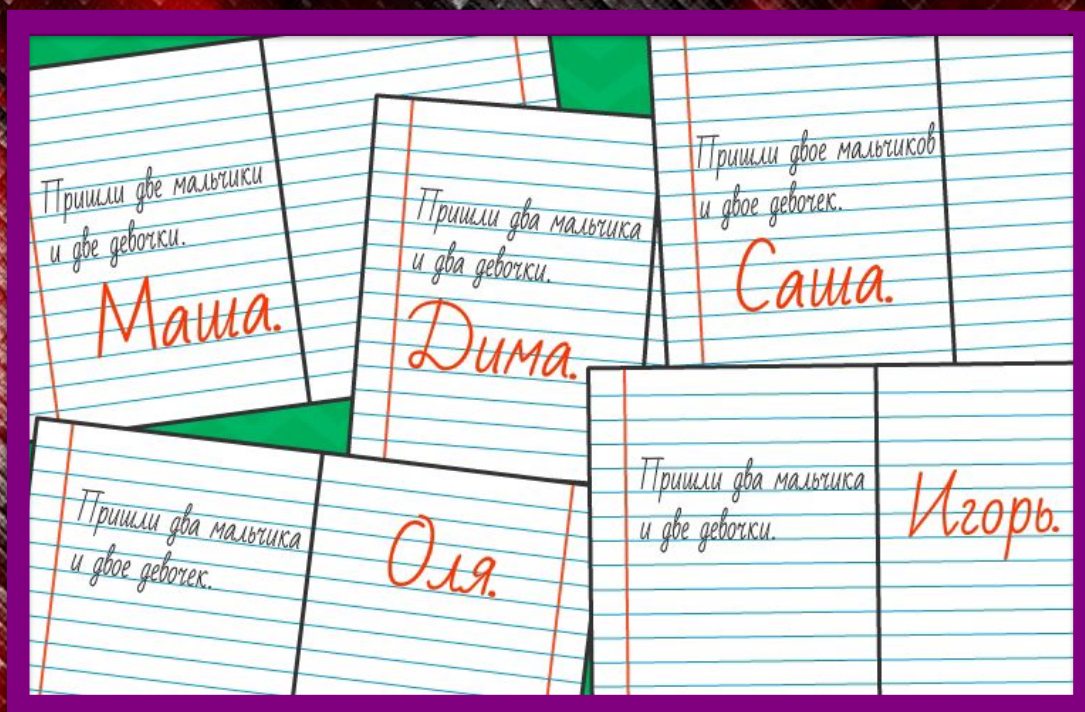 Пришли две мальчики
и две девочки.
Маша.
Пришли два мальчика
и два девочки.
Дима.
Пришли двое мальчиков
и двое девочек.
Саша.
Пришли два мальчика
и двое девочек.
Оля.
Пришли два мальчика
и две девочки.
Игорь.